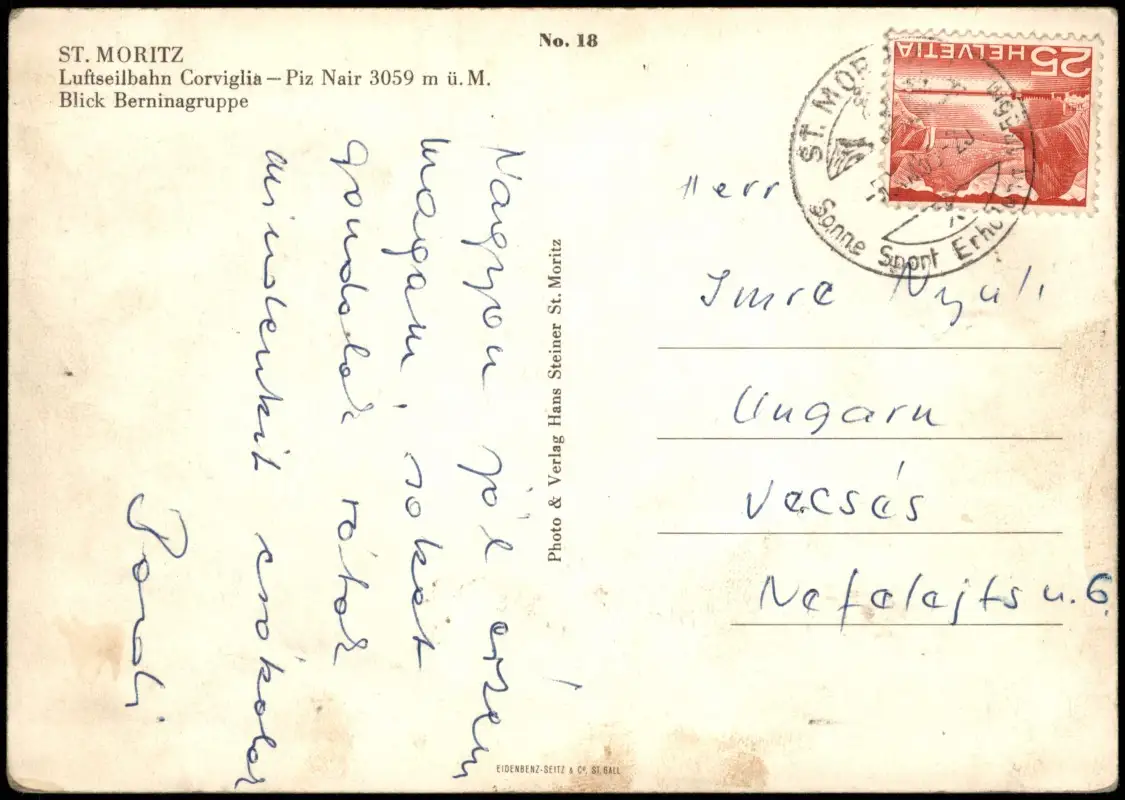 ST. MORITZ
Luftseilbahn Corviglia – Piz Nair 3059 m ü. M.
Blick Berninagruppe
No. 18
Nagyon jól érzem
magam, sokat
gondolok rátok
mindenkit csókol
Photo & Verlag Hans Steiner St. Moritz
EIDENBENZ-SEITZ & Co. ST. GALL
HELVETIA 25
ST. MOR
Sonne Sport Erho
Herr
Imre Nyúli
Ungarn
Vecsés
Nefelejts u. 6.